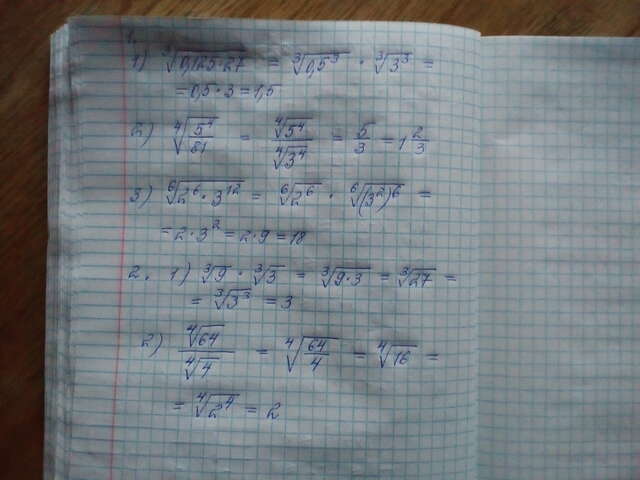 1.
1) ∛(0,125·27) = ∛0,5³ · ∛3³ =
= 0,5 · 3 = 1,5
2) ⁴√(5⁴/81) = ⁴√5⁴/⁴√3⁴ = 5/3 = 1 2/3
3) ⁶√(2⁶ · 3¹²) = ⁶√2⁶ · ⁶√(3²)⁶ =
= 2 · 3² = 2 · 9 = 18
2. 1) ∛9 · ∛3 = ∛(9·3) = ∛27 =
= ∛3³ = 3
2) ⁴√64/⁴√4 = ⁴√(64/4) = ⁴√16 =
= ⁴√2⁴ = 2